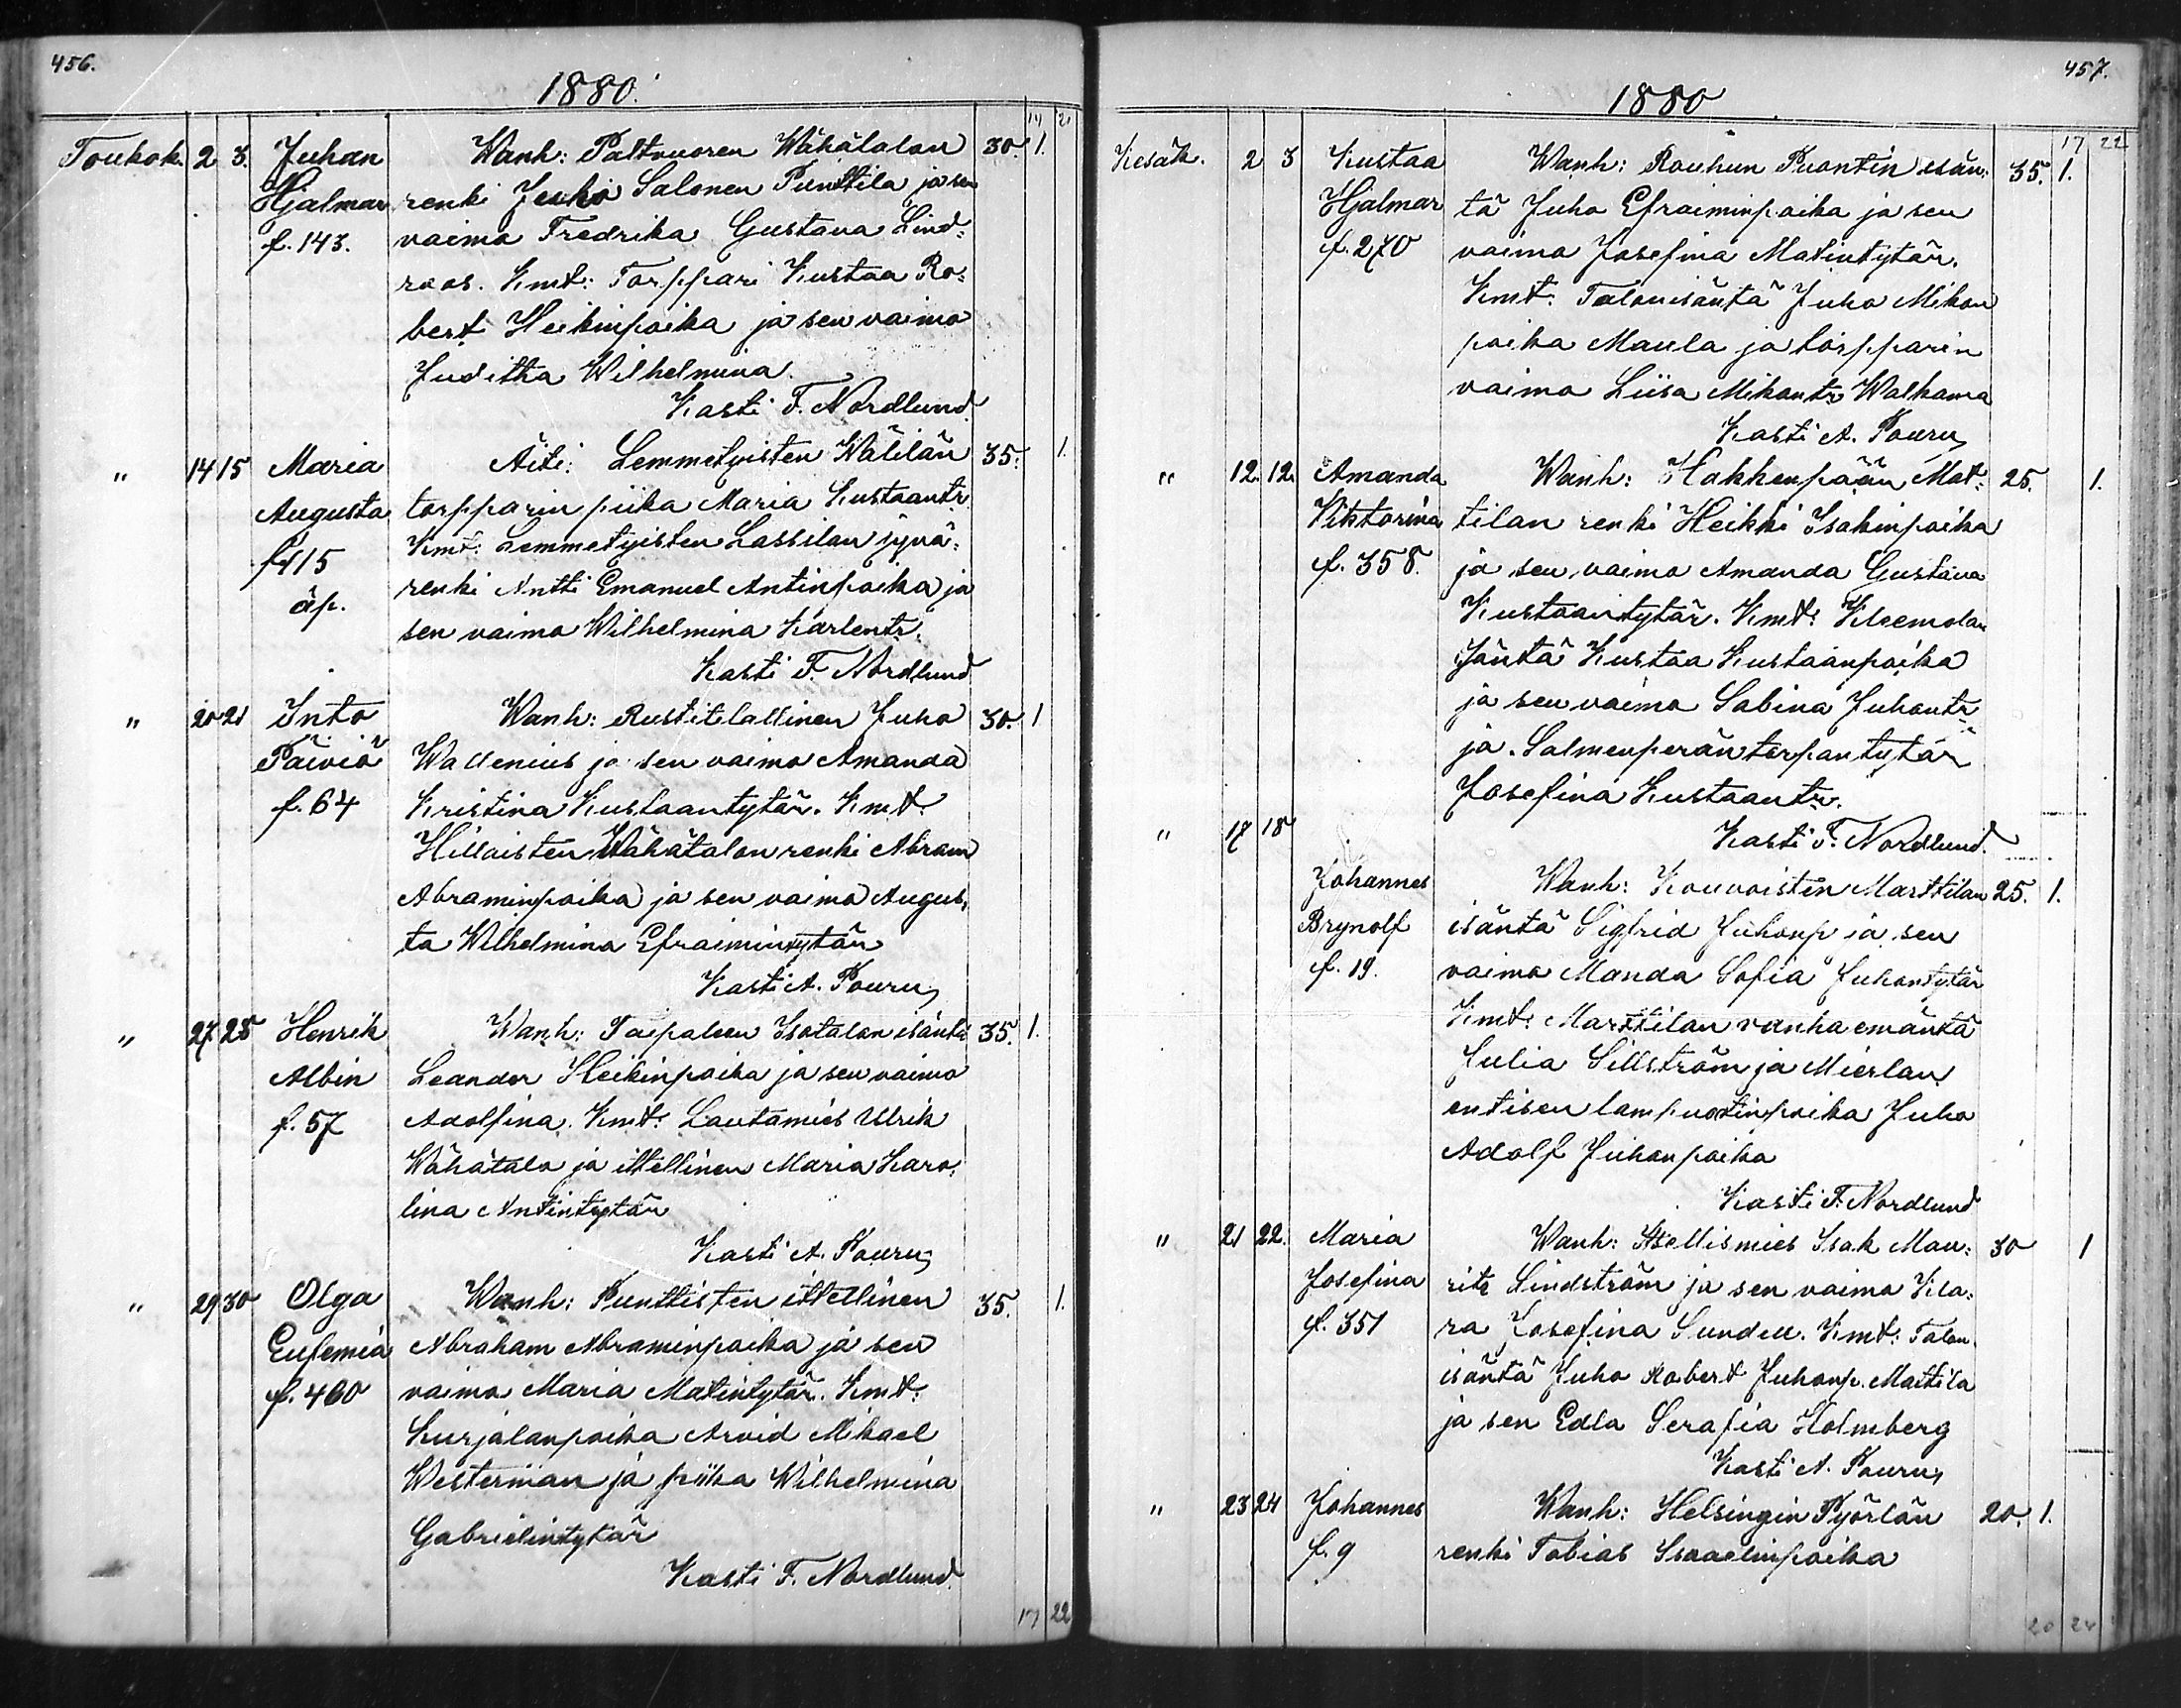 456.
1880.
14 21
Toukok. 2 3. Juhan Wanh: Paltvuoren Wähätalon 30. 1.
Hjalmar renki Juho Salonen Punttila ja sen
f. 143. vaimo Fredrika Gustava Lind=
roos. Kmt: Torppari Kustaa Ro=
bert Heikinpoika ja sen vaimo
Juditha Wilhelmina.
Kasti F. Nordlund
" 14 15 Maria Äiti: Lemmetyisten Wälilän 35. 1.
Augusta torpparin piika Maria Kustaantr.
f 415 Kmt: Lemmetyisten Lassilan jyvä=
äp. renki Antti Emanuel Antinpoika ja
sen vaimo Wilhelmina Karlentr.
Kasti F. Nordlund
" 20 21 Into Wanh: Rustitilallinen Juho 30. 1
Päiviö Wallenius ja sen vaimo Amanda
f. 64 Kristina Kustaantytär. Kmt:
Hilloisten Wähätalon renki Abram
Abraminpoika ja sen vaimo Augus=
ta Wilhelmina Efraimintytär
Kasti A. Pouru
" 27 28 Henrik Wanh: Taipaleen Isotalon isäntä 35. 1.
Albin Leander Heikinpoika ja sen vaimo
f. 57 Adolfina. Kmt: Lautamies Ulrik
Wähätalo ja ittellinen Maria Karo=
lina Antintytär
Kasti A. Pouru
" 29 30 Olga Wanh: Punttisten ittellinen 35. 1.
Eufemia Abraham Abraminpoika ja sen
f. 460 vaimo Maria Matintytär. Kmt:
Kurjalanpoika Arvid Mikael
Westerman ja piika Wilhelmina
Gabrielintytär
Kasti F. Nordlund
17 22
457.
1880
17 22
Kesäk. 2 3 Kustaa Wanh: Rouhun Puontin isän= 35. 1.
Hjalmar tä Juho Efraiminpoika ja sen
f. 270 vaimo Josefina Matintytär.
Kmt: Talonisäntä Juho Mikon
poika Maula ja torpparin
vaimo Liisa Mikontr Walkama
Kasti A. Pouru
" 12. 12. Amanda Wanh: Hakkenpään Mat= 25. 1.
Viktorina tilan renki Heikki Isakinpoika
f. 358. ja sen vaimo Amanda Gustava
Kustaantytär. Kmt: Kleemolan
Jäntä Kustaa Kustaanpoika
ja sen vaimo Sabina Juhontr
ja Salmenperän torpantytär
Josefina Kustaantr.
" 17 18 Kasti F. Nordlund.
Johannes Wanh: Kouvoisten Marttilan 25. 1.
Brynolf isäntä Sigfrid Juhonp ja sen
f. 19. vaimo Manda Sofia Juhontytär
Kmt: Marttilan vanha emäntä
Julia Sillström ja Mierlan
entisen lampuotinpoika Juho
Adolf Juhonpoika
Kasti F. Nordlund
" 21 22. Maria Wanh: Itsellismies Isak Mau= 30 1
Josefina ritz Lindström ja sen vaimo Kla=
f. 351 ra Josefina Sundell. Kmt: Talon
isäntä Juho Robert Juhonp. Mattila
ja sen Edla Serafia Holmberg
Kasti A. Pouru
" 23 24 Johannes Wanh: Helsingin Pyörlän 20. 1.
f. 9 renki Tobias Isaaelinpoika
20 24